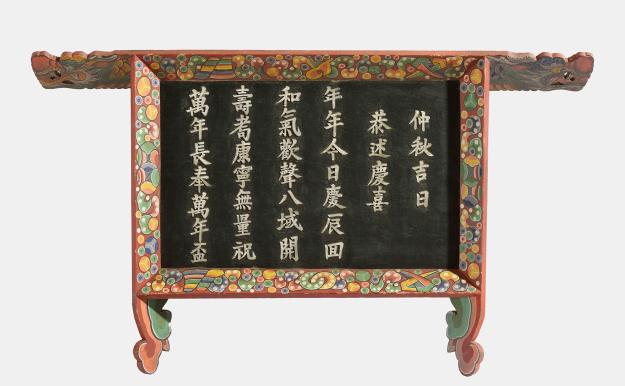 仲秋吉日
恭述慶喜
年年今日慶辰回
和氣歡聲八域開
壽耉康寧無量祝
萬年長奉萬年盃